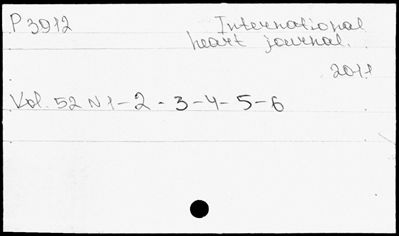 P 3912 International
heart journal.
2011
Vol. 52 N 1-2-3-4-5-6